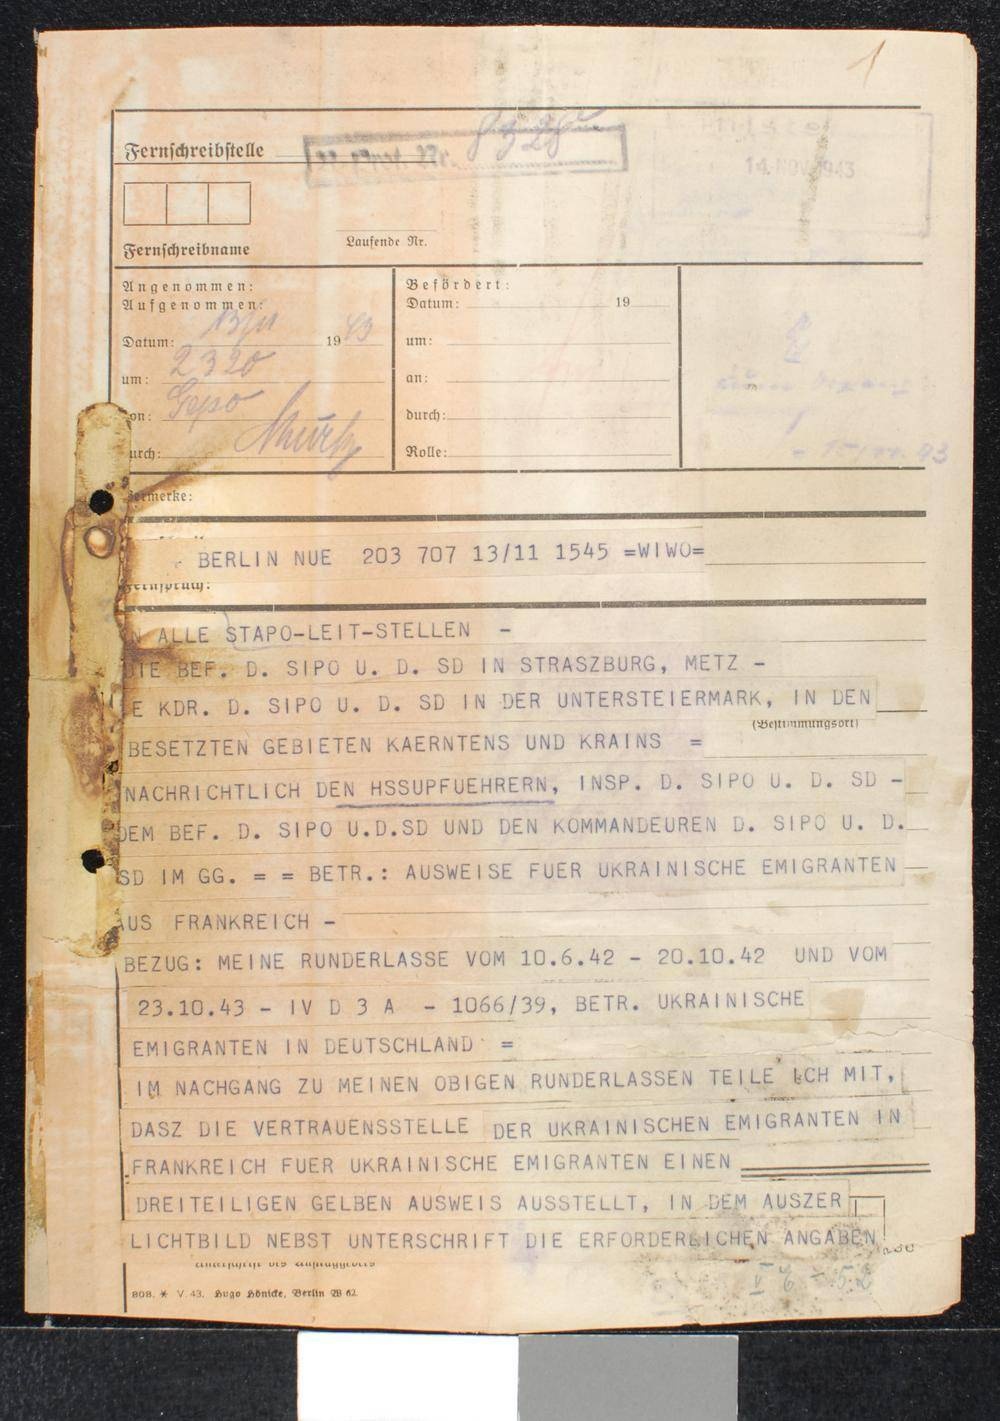 1
Fernschreibstelle
8328
14. NOV. 1943
Fernschreibname
Laufende Nr.
Angenommen:
Aufgenommen:
Datum: 13/11 1943
um: 2320
on: Gepo
urch:
Befördert:
Datum: 19
um:
an:
durch:
Rolle:
15/11. 43
ermerke:
BERLIN NUE 203 707 13/11 1545 =WIWO=
Fernspruch:
N ALLE STAPO-LEIT-STELLEN -
DIE BEF. D. SIPO U. D. SD IN STRASZBURG, METZ -
E KDR. D. SIPO U. D. SD IN DER UNTERSTEIERMARK, IN DEN
(Bestimmungsort)
BESETZTEN GEBIETEN KAERNTENS UND KRAINS =
NACHRICHTLICH DEN HSSUPFUEHRERN, INSP. D. SIPO U. D. SD -
DEM BEF. D. SIPO U.D.SD UND DEN KOMMANDEUREN D. SIPO U. D.
SD IM GG. = = BETR.: AUSWEISE FUER UKRAINISCHE EMIGRANTEN
AUS FRANKREICH -
BEZUG: MEINE RUNDERLASSE VOM 10.6.42 - 20.10.42 UND VOM
23.10.43 - IV D 3 A - 1066/39, BETR. UKRAINISCHE
EMIGRANTEN IN DEUTSCHLAND =
IM NACHGANG ZU MEINEN OBIGEN RUNDERLASSEN TEILE ICH MIT,
DASZ DIE VERTRAUENSSTELLE DER UKRAINISCHEN EMIGRANTEN IN
FRANKREICH FUER UKRAINISCHE EMIGRANTEN EINEN
DREITEILIGEN GELBEN AUSWEIS AUSSTELLT, IN DEM AUSZER
LICHTBILD NEBST UNTERSCHRIFT DIE ERFORDERLICHEN ANGABEN
Unterschrift des Auftraggebers
V 6 - 52
808. * V. 43. Hugo Hönicke, Berlin W 62.